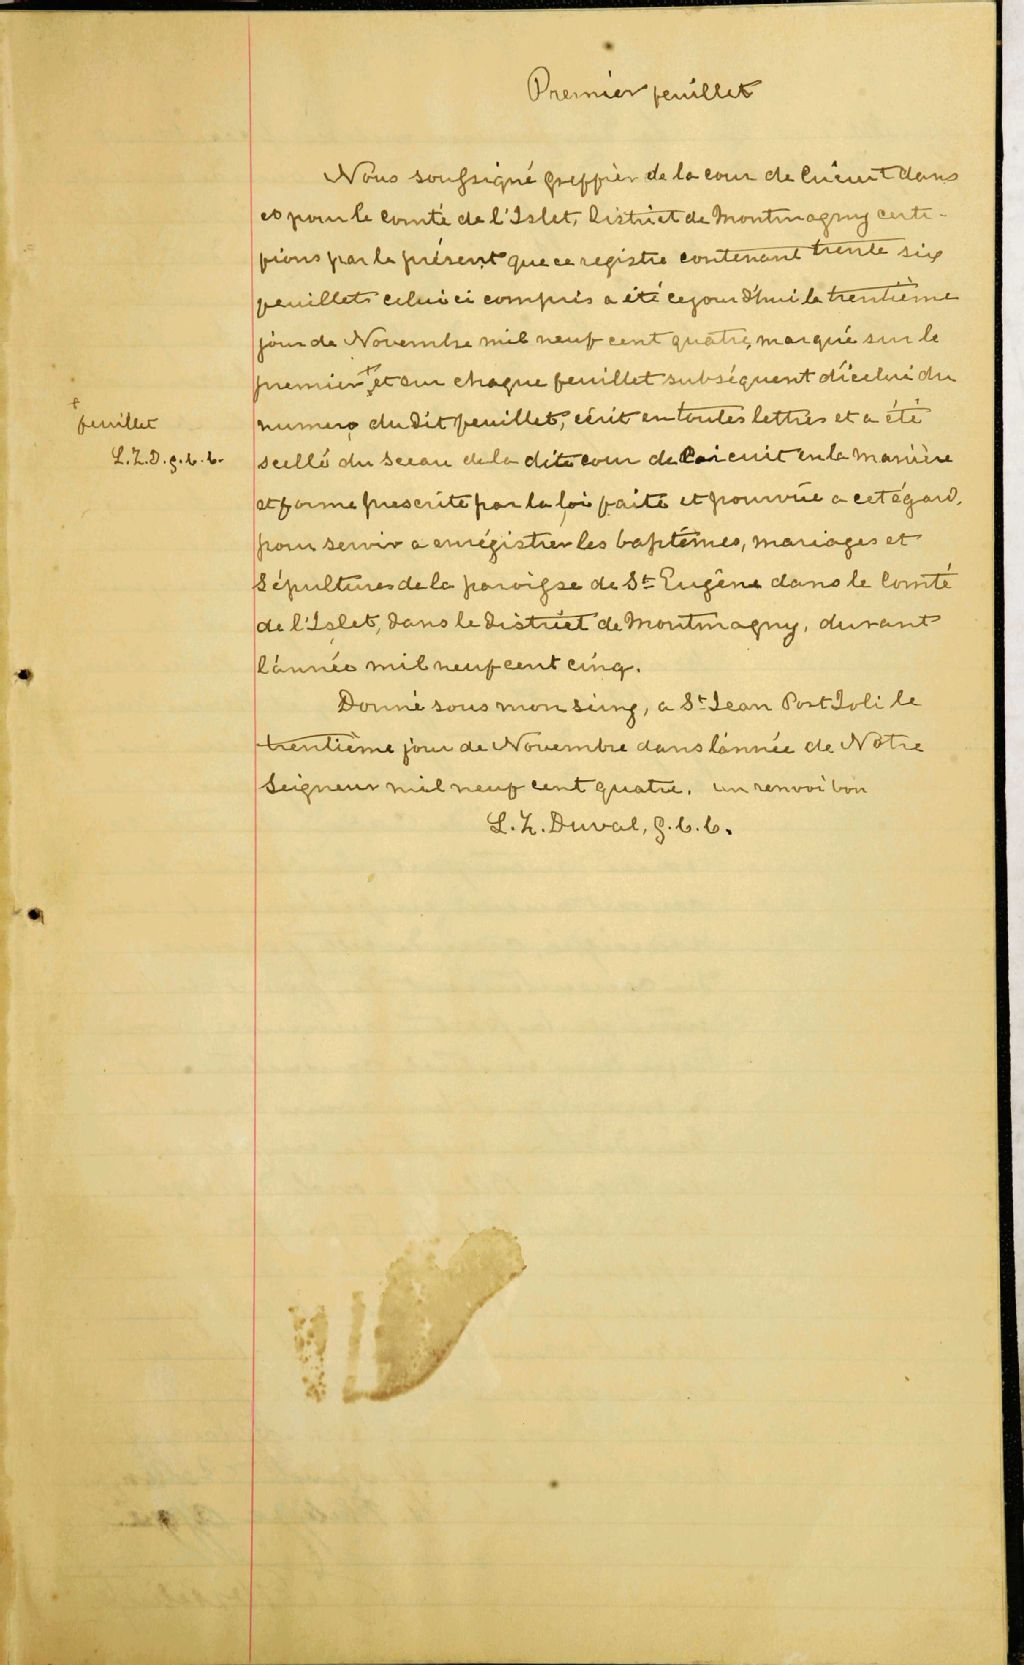 Premier feuillet
Nous soussigné greffier de la cour de Circuit dans
et pour le comté de l'Islet, District de Montmagny certi-
fions par le présent que ce registre contenant trente six
feuillets celui ci compris a été ce jour d'hui le trentième
jour de Novembre mil neuf cent quatre, marqué sur le
premier + et sur chaque feuillet subséquent d'icelui du
numero du dit feuillet, écrit en toutes lettres et a été
+ feuillet
L.Z.D. g.c.c.
scellé du sceau de la dite cour de Circuit en la manière
et forme prescrite par la loi faite et pourvüe a cet égard,
pour servir a enrégistrer les baptêmes, mariages et
Sépultures de la paroisse de St Eugène dans le Comté
de l'Islet, dans le District de Montmagny, durant
l'année mil neuf cent cinq.
Donné sous mon seing, a St Jean Port Joli le
trentième jour de Novembre dans l'année de Notre
Seigneur mil neuf cent quatre. un renvoi bon
L.Z. Duval, g.c.c.